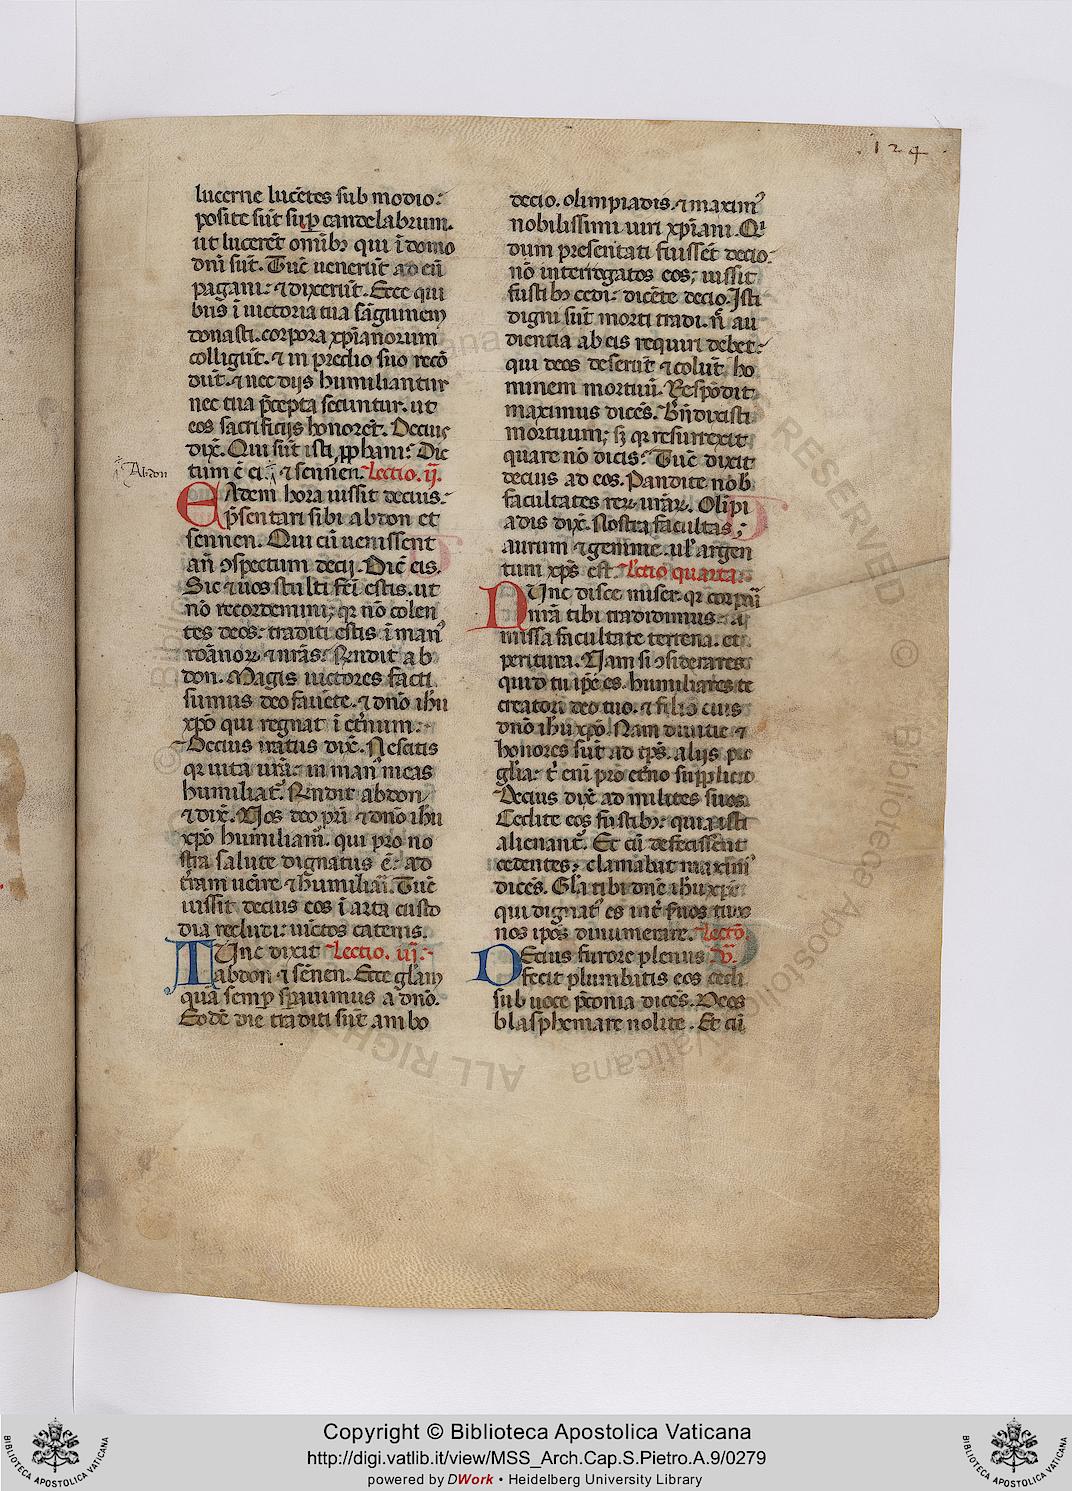 .124.
lucerne lucētes sub modio:
posite sūt sup candelabrum.
ut lucerēt omībꝫ qui ī domo
dn̄i sūt. Tūc uenerūt ad eū
pagani: ⁊ dixerūt. Ecce qui
bus ī uictoria tua sāguinem
donasti. corpora xp̄ianorum
colligūt. ⁊ in predio suo recō
dūt. ⁊ nec diis humiliantur
nec tua p̄cepta secuntur. ut
eos sacrificijs honorēt. Decius
dix̄. Qui sūt isti ꝓphani: Dic
tum ē ei ⁊ sennen. Lectio. ij.
Abdon
EAdem hora iussit decius
p̄sentari sibi abdon et
sennen. Qui cū uenissent
an̄ ɔspectum decij. Dic̄ eis.
Sic ⁊ uos stulti fc̄i estis. ut
nō recordemini; qꝛ nō colen
tes deos: traditi estis ī manꝰ
romanoꝝ ⁊ ur̄as: Rn̄dit ab
don. Magis uictores facti
sumus deo fauēte. ⁊ dn̄o ih̄u
xp̄o qui regnat ī et̄num.
Decius iratus dix̄. Nescitis
qꝛ uita ur̄a: in manꝰ meas
humiliat᷑. Rn̄dit abdon
⁊ dix̄. Nos deo pr̄i ⁊ dn̄o ih̄u
xp̄o humiliam᷒. qui pro no
stra salute dignatus ē: ad
t̄ram uenire ⁊ humiliari. Tūc
iussit decius eos ī arta custo
dia recludi: uictos catenis.
TUnc dixit Lectio. iij.
abdon ⁊ sēnen. Ecce gl̄am
quā semꝑ sperauimus a dn̄o.
Eodē die traditi sūt ambo
decio. olimpiadis. ⁊ maximꝰ
nobilissimi uiri xp̄iani. Qi
dum presentati fuissēt decio
nō interrogatos eos; iussit
fustibꝫ cedi: dicēte decio. Isti
digni sūt morti tradi. n̄ au
dientia ab eis requiri debet:
qui deos deserūt ⁊ colūt ho
minem mortuū. Respōdit
maximus dicēs. Bn̄ dixisti
mortuum; sꝫ qꝛ resurrexit
quare nō dicis: Tūc dixit
decius ad eos. Pandite nob̄
facultates reꝝ ur̄aꝝ. Olipi
adis dix̄. Nostra facultas;
aurum ⁊ gemme. ul᷑ argen
tum xp̄s est. Lectio quarta.
NUnc disce miser. qꝛ corpa
nr̄a tibi tradidimus.
missa facultate terrena. et
peritura. Nam si ɔsiderares
quid tu ip̄e es. humiliares te
creatori deo tuo. ⁊ filio eius
dn̄o ih̄u xp̄o. Nam diuitie ⁊
honores sūt ad tp̄s. alijs
gl̄ia: t̄ eni pro et̄no supplicio
Decius dix̄ ad milites suos.
Cedite eos fustibꝫ: quia isti
alienant᷑. Et cū defecissent
cedentes; clamabat maximꝰ
dicēs. Gl̄a tibi dn̄e ih̄u xp̄e
qui dignatꝰ es int̄ suos tuos
nos ip̄os dinumerare. Lectō
DEcius furore plenus .v̄.
fecit plumbatis eos cedi
sub uoce p̄conia dicēs. Deos
blasphemare nolite. Et cū
© Biblioteca Apostolica Vaticana
ALL RIGHTS RESERVED
Copyright © Biblioteca Apostolica Vaticana
http://digi.vatlib.it/view/MSS_Arch.Cap.S.Pietro.A.9/0279
powered by DWork • Heidelberg University Library
BIBLIOTECA APOSTOLICA VATICANA
BIBLIOTECA APOSTOLICA VATICANA